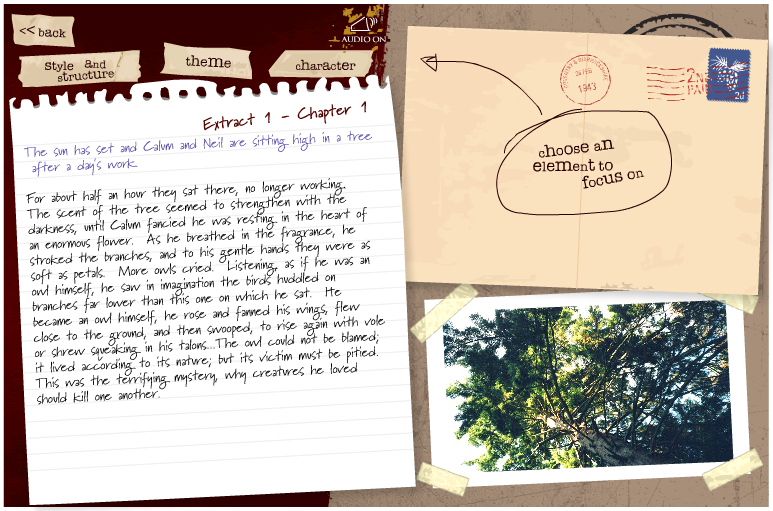 << back
AUDIO ON
style and
structure
theme
character
Extract 1 - Chapter 1
The sun has set and Calum and Neil are sitting high in a tree
after a day's work
For about half an hour they sat there, no longer working.
The scent of the tree seemed to strengthen with the
darkness, until Calum fancied he was resting in the heart of
an enormous flower. As he breathed in the fragrance, he
stroked the branches, and to his gentle hands they were as
soft as petals. More owls cried. Listening, as if he was an
owl himself, he saw in imagination the birds huddled on
branches far lower than this one on which he sat. He
became an owl himself, he rose and fanned his wings, flew
close to the ground, and then swooped, to rise again with vole
or shrew squeaking in his talons...The owl could not be blamed;
it lived according to its nature; but its victim must be pitied.
This was the terrifying mystery, why creatures he loved
should kill one another.
1943
choose an
element to
focus on